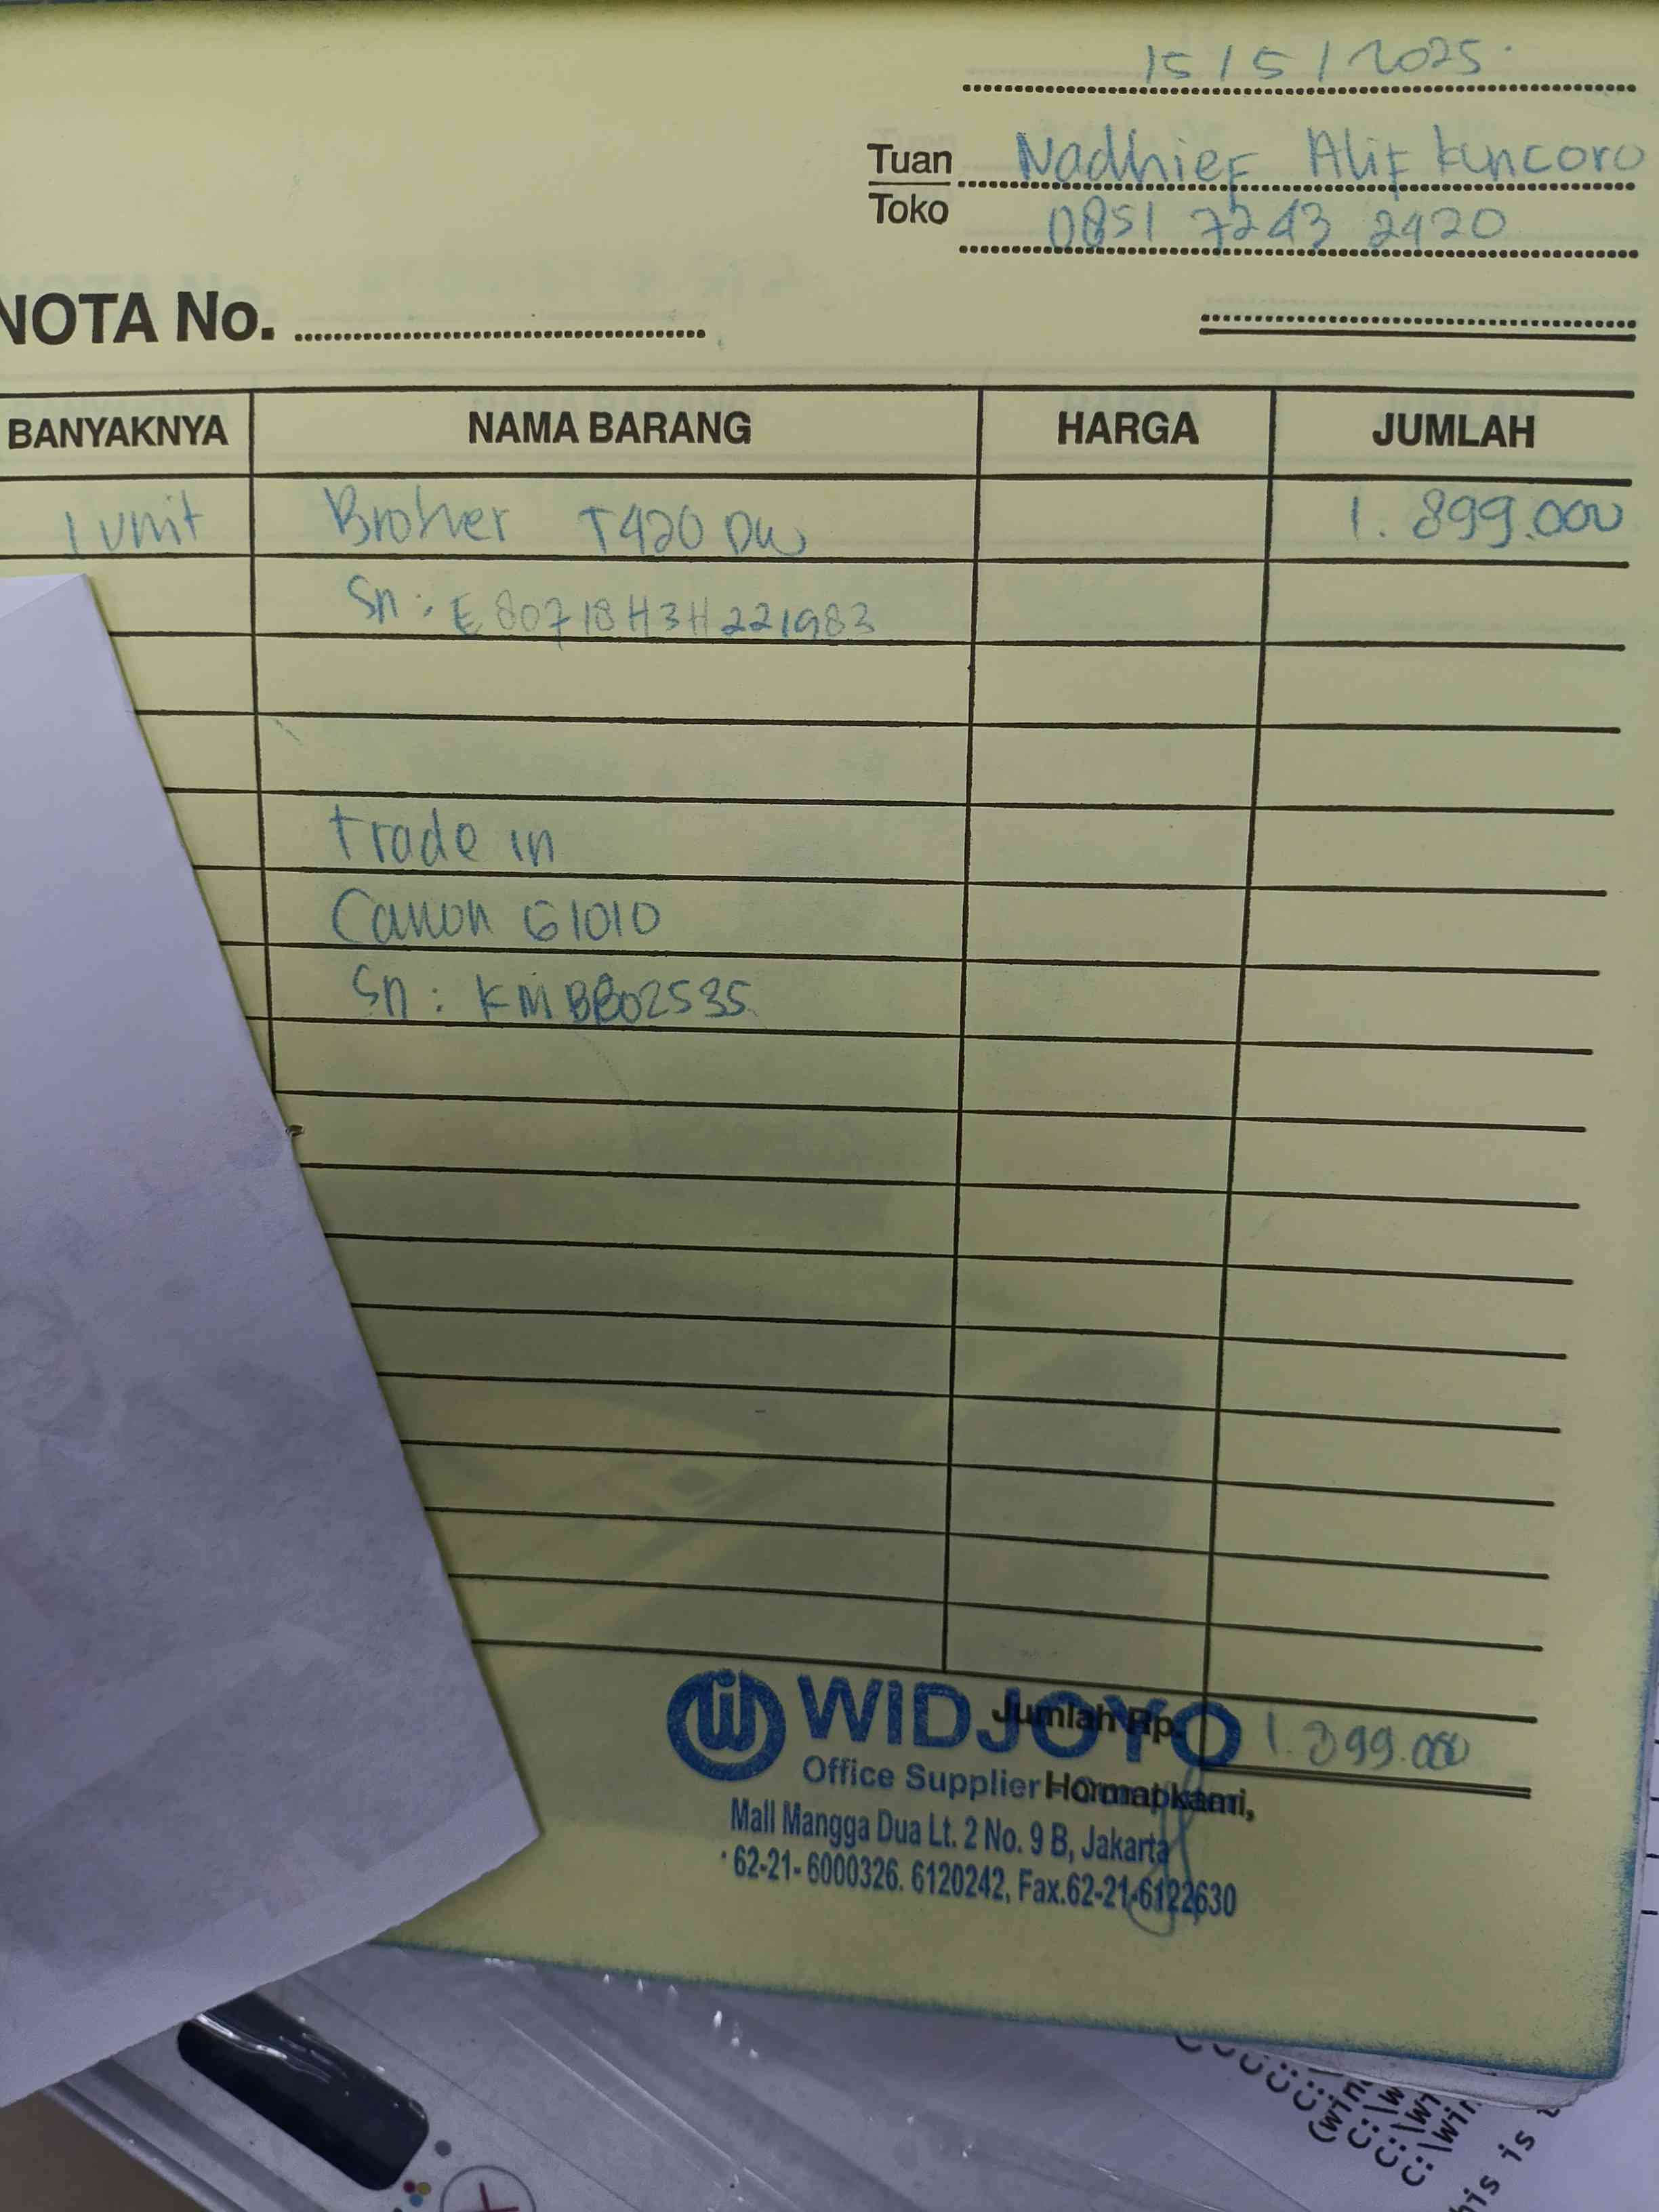 15/5/2025
Tuan Nadhief Alif Kuncoro
Toko 0851 7243 2920
NOTA No.
BANYAKNYA NAMA BARANG HARGA JUMLAH
1 Unit Brother T420 DW 1.899.000
Sn: E80718H3H221983
trade in
Canon G1010
Sn: KMBB02535
Jumlah Rp. 1.899.000
WIDJOYO
Office Supplier
Hormat kami,
Mall Mangga Dua Lt. 2 No. 9 B, Jakarta
62-21-6000326. 6120242, Fax.62-21-6122630